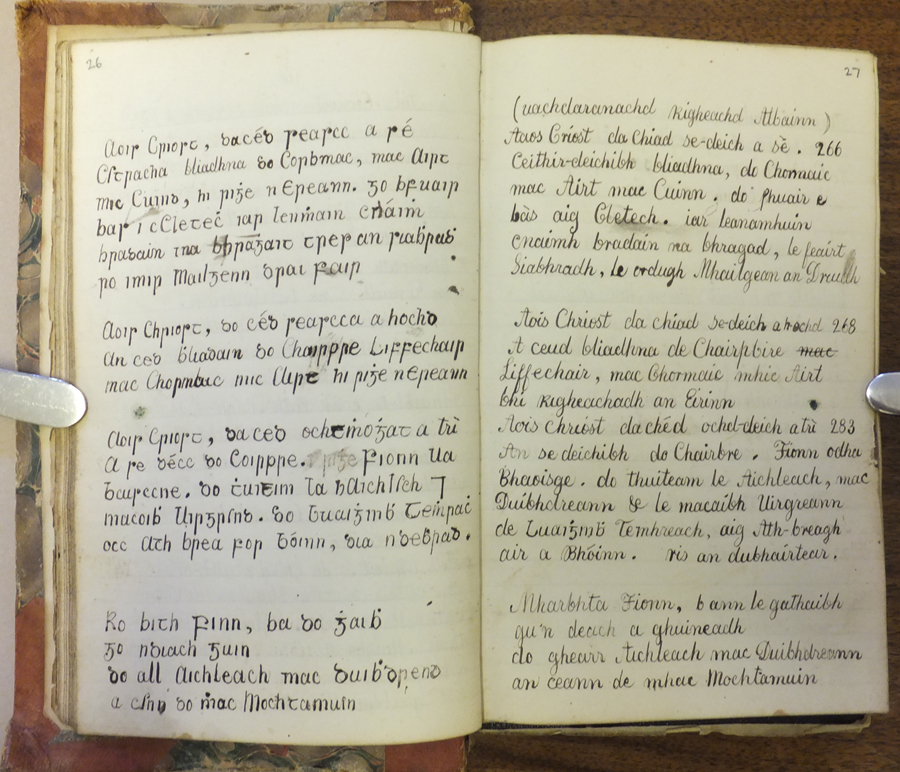 26
Aois Criort, dacéd searcc a ré
Cethracha bliadhna do Corbmac, mac Airt
mic Cuind, hi righe nEreann. go bfuair
bas i cCleteċ iar lenmain cnáiṁ
bradain ina bhraghait tres an siabhradh
ro imir Mailgenn drai fair
Aois Chriort, do céd searcca a hochd
An ced bliadain do Chairppe Liffechair
mac Chormaic mic Airt hi righe nEreann
Aois Criort, da ced ochtmoghat a tri
A se décc do Coirppe. righe Fionn Ua
baircne. do ċuitim la hAichlech ⁊
macoib Uirgrend. do Luaighnib Tempaċ
occ Ath brea for bóinn, dia ndebrad.
Ro bith Finn, ba do gaib
go ndiach guin
do all Aichleach mac Duibdrend
a chnn do mac Mochtamuin
27
(uachdaranachd Righeachd Albainn)
Aaos Criost da Chiad se-deich a sè. 266
Ceithir-deichibh bliadhna, do Chormaic
mac Airt mac Cuinn. do fhuair e
bàs aig Cletech. iar leanamhuin
cnaimh bradain na bhragad, le feairt
Siabhradh, le ordugh Mhailgean an Druidh
Aois Chriost da chiad se-deich a hochd 268
A ceud bliadhna de Chairpbire mac
Liffechair, mac Chormaic mhic Airt
bhi Righeachadh an Eirinn
Aois Chriost da chéd ochd-deich a tri 283
An se deichibh do Chairbre. Fionn odha
Bhaoisge. do thuiteam le Aichleach, mac
Duibhdreann & le macaibh Uirgreann
de Luaighnib Temhreach, aig Ath-breagh
air a Bhóinn. ris an dubhairtear.
Mharbhta Fionn, b ann le gathaibh
gu'n deach a ghuineadh
do ghearr Aichleach mac Duibhdreann
an ceann de mhac Mochtamuin